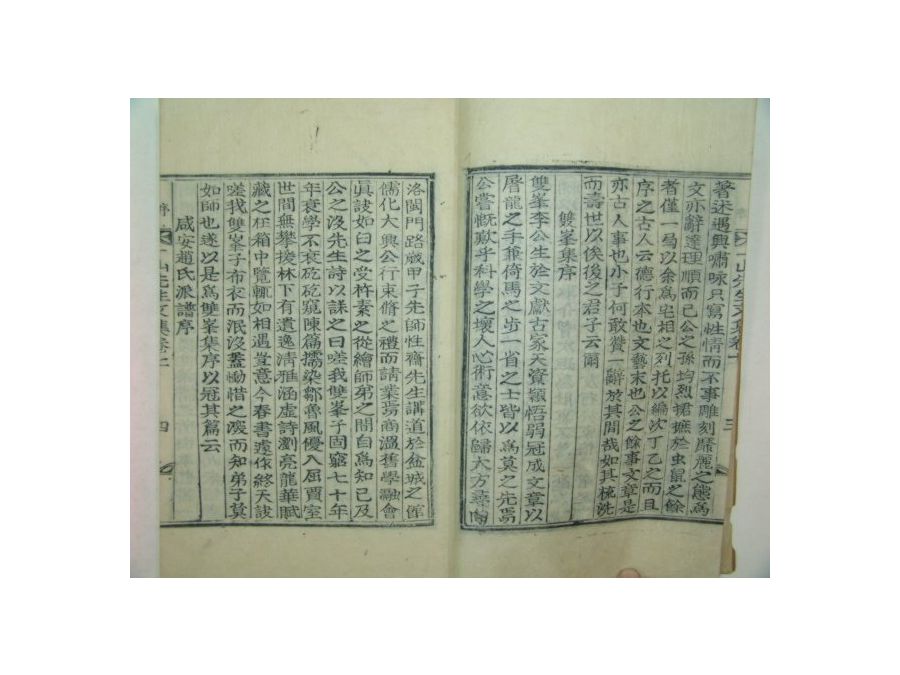 著述遇興嘯咏只寫性情而不事雕刻靡麗之態爲
文亦辭達理順而已公之孫均烈捃摭於虫鼠之餘
者僅一弓以余爲宅相之列托以編次丁乙之而且
序之古人云德行本也文藝末也公之餘事文章是
亦古人事也小子何敢贊一辭於其間哉如其梳洗
而壽世以俟後之君子云爾
雙峯集序
雙峯李公生於文獻古家天資穎悟弱冠成文章以
屠龍之手兼倚馬之步一省之士皆以爲莫之先焉
公嘗慨歎乎科學之壞人心術意欲依歸大方尋向
洛閩門路歲甲子先師性齋先生講道於盆城之館
儒化大興公行束脩之禮而請業焉商溫舊學融會
眞諼如臼之受杵素之從繪師弟之間自爲知己及
公之沒先生詩以誄之曰嗟我雙峯子固窮七十年
年衰學不衰矻矻窺陳篇擩染鄒魯風優入屈賈室
世間無攀援林下有遺逸淸雅涵虛詩瀏亮龍華賦
藏之在箱中覽輒如相遇豈意今春書遽作終天訣
嗟我雙峯子布衣而泯沒蓋慟惜之深而知弟子莫
如師也遂以是爲雙峯集序以冠其篇云
咸安趙氏派譜序
一山先生文集卷一
三
序
一山先生文集卷一
四